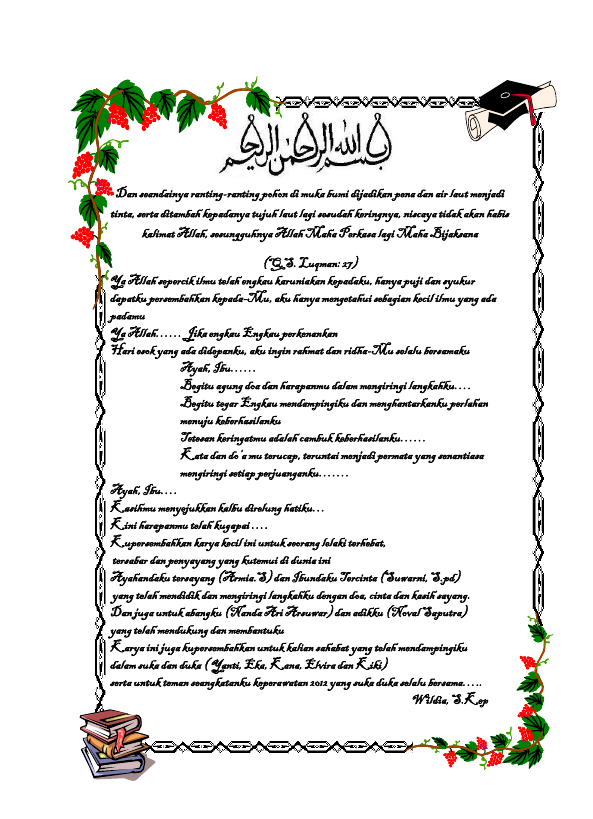 بسم الله الرحمن الرحيم
Dan seandainya ranting-ranting pohon di muka bumi dijadikan pena dan air laut menjadi
tinta, serta ditambah kepadanya tujuh laut lagi sesudah keringnya, niscaya tidak akan habis
kalimat Allah, sesungguhnya Allah Maha Perkasa lagi Maha Bijaksana
(Q.S. Luqman: 27)
Ya Allah sepercik ilmu telah engkau karuniakan kepadaku, hanya puji dan syukur
dapatku persembahkan kepada-Mu, aku hanya mengetahui sebagian kecil ilmu yang ada
padamu
Ya Allah…… Jika engkau Engkau perkenankan
Hari esok yang ada didepanku, aku ingin rahmat dan ridha-Mu selalu bersamaku
Ayah, Ibu……
Begitu agung doa dan harapanmu dalam mengiringi langkahku….
Begitu tegar Engkau mendampingiku dan menghantarkanku perlahan
menuju keberhasilanku
Tetesan keringatmu adalah cambuk keberhasilanku……
Kata dan do'a mu terucap, teruntai menjadi permata yang senantiasa
mengiringi setiap perjuanganku…….
Ayah, Ibu….
Kasihmu menyejukkan kalbu direlung hatiku…
Kini harapanmu telah kugapai ….
Kupersembahkan karya kecil ini untuk seorang lelaki terhebat,
tersabar dan penyayang yang kutemui di dunia ini
Ayahandaku tersayang (Armia.S) dan Ibundaku Tercinta (Suwarni, S.pd)
yang telah mendidik dan mengiringi langkahku dengan doa, cinta dan kasih sayang.
Dan juga untuk abangku (Nanda Ari Arsuwar) dan adikku (Noval Saputra)
yang telah mendukung dan membantuku
Karya ini juga kupersembahkan untuk kalian sahabat yang telah mendampingiku
dalam suka dan duka ( Yanti, Eka, Kana, Elvira dan Kiki)
serta untuk teman seangkatanku keperawatan 2012 yang suka duka selalu bersama…..
Wildia, S.Kep